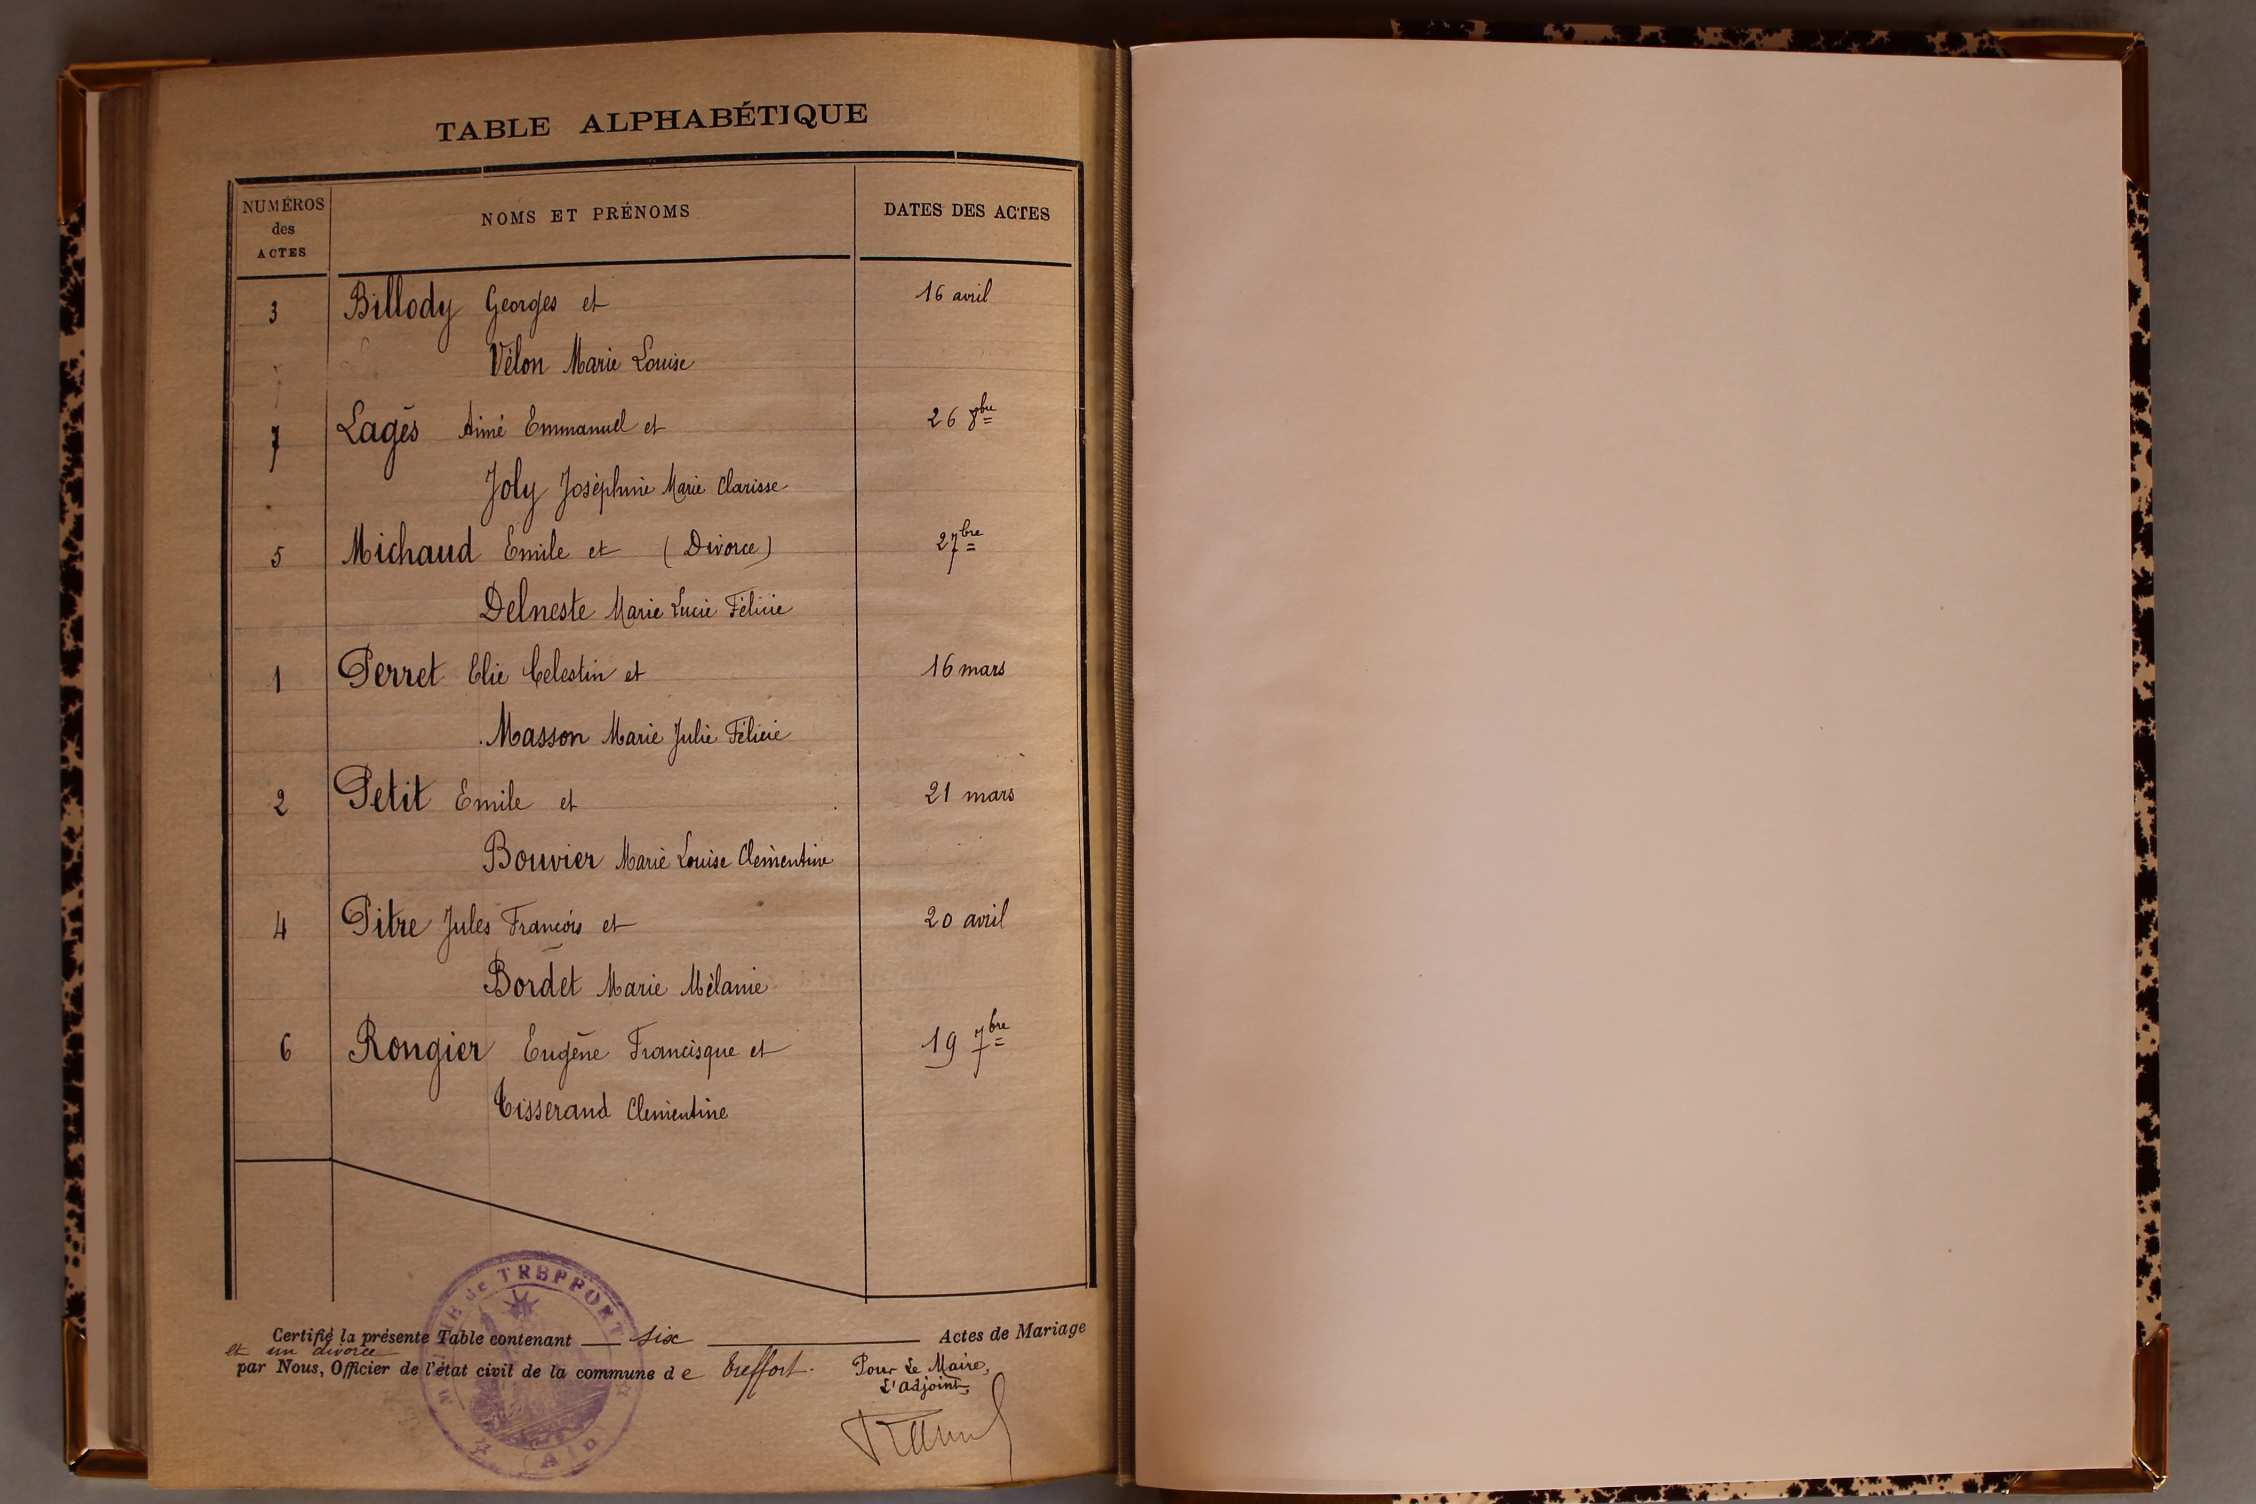 TABLE ALPHABÉTIQUE
NUMÉROS des ACTES
NOMS ET PRÉNOMS
DATES DES ACTES
3 Billody Georges et 16 avril
Vélon Marie Louise
7 Lagès Aimé Emmanuel et 26 8bre
Joly Joséphine Marie Clarisse
5 Michaud Emile et (Divorce) 2 7bre
Delneste Marie Lucie Félicie
1 Perret Elie Celestin et 16 mars
Masson Marie Julie Félicie
2 Petit Emile et 21 mars
Bouvier Marie Louise Clementine
4 Pitre Jules Francois et 20 avril
Bordet Marie Mélanie
6 Rongier Eugène Francisque et 19 7bre
Tisserand Clementine
MAIRIE de TREFFORT
(Ain)
Certifié la présente Table contenant six Actes de Mariage
et un divorce
par Nous, Officier de l'état civil de la commune de Treffort.
Pour Le Maire,
L'adjoint,